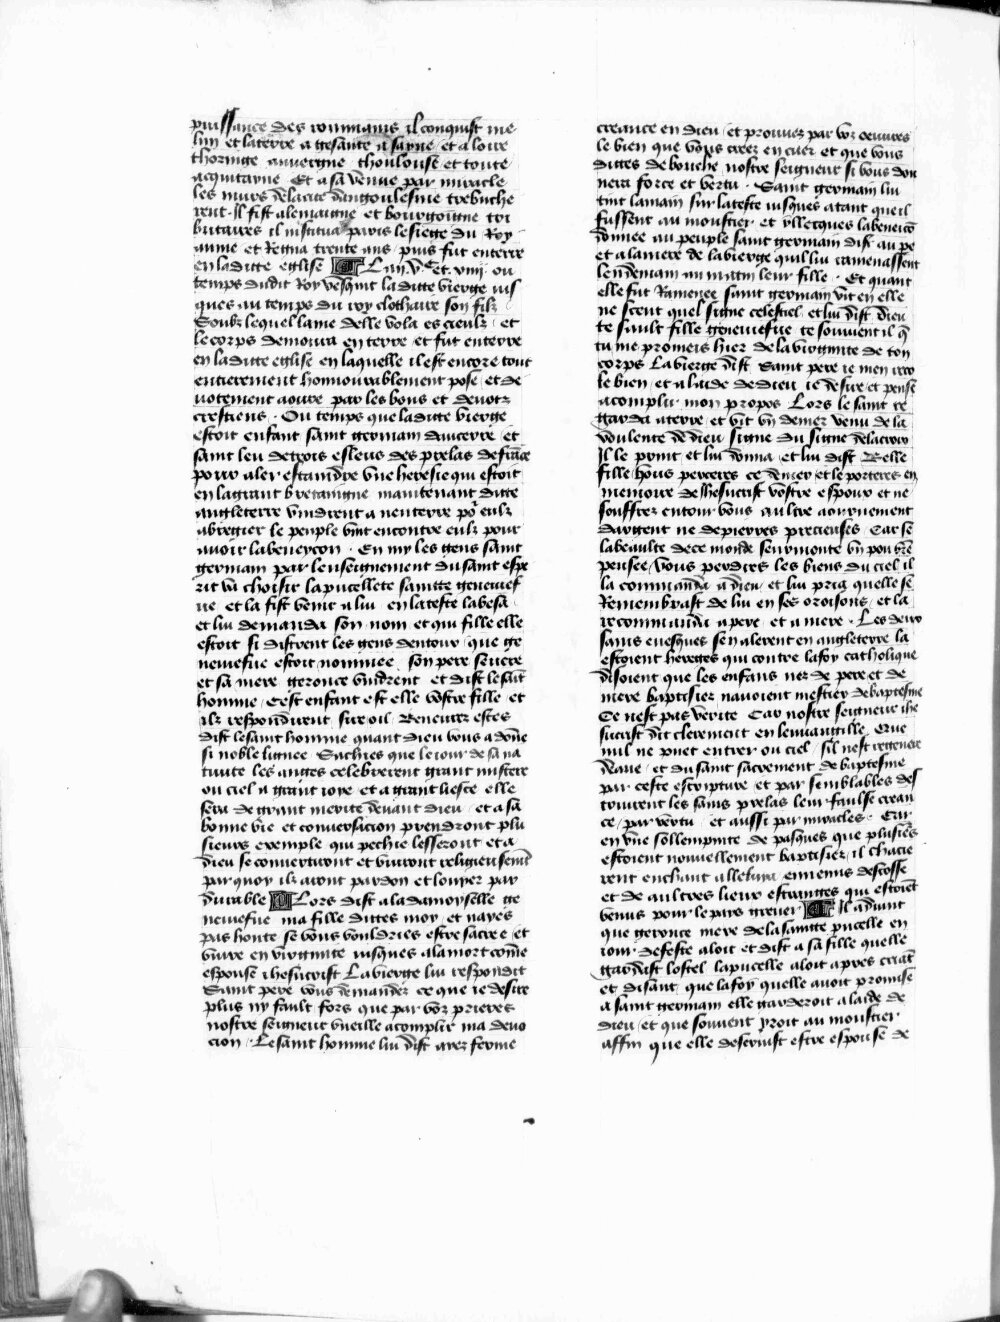 puissance des rommains il conquist me
lun et la terre a gesante a sayne et a loire
thoringe auvergne thoulouse et toute
acquitayne Et a sa venue par miracle
les murs de la cite dangoulesme trebuche
rent Il fist alemaigne et bourgoigne tri
butaires il institua paris le siege du Roy
aume et Regna trente ans puis fut enterre
en la ditte eglise Lan et viii ou
temps dudit Roy vesquit la ditte vierge ius
ques au temps du roy clothaire son filz
Soubz lequel lame delle vola es cieulz et
le corps demoura en terre et fut enterre
en la ditte eglise en laquelle il est encore tout
entierement honnourablement pose et de
uotement aoure par les bons et deuotz
crestiens Ou temps que la ditte vierge
estoit enfant saint germain daucerre et
saint leu de trois esleus des prelas de france
pour aler estaindre vne heresie qui estoit
en la grant bretaingne maintenant ditte
angleterre vindrent a nenterre po eulz
abregier le peuple vint encontre eulz pour
auoir la beneycon En my les gens saint
germain par lenseignement du saint espe
rit va choisir la pucellete saintte geneuief
ue et la fist venir a lui en la teste la besa
et lui demanda son nom et qui fille elle
estoit si distrent les gens dentour que ge
neuefue estoit nommee son pere seuere
et sa mere geronce vindrent et dist le sait
homme Cest enfant est elle vostre fille et
ilz respondirent sire oil Beneurez estes
dist le saint homme quant dieu vous a done
si noble lignee Sachies que le iour de sa na
tiuite les anges celebrerent grant mistere
ou ciel a grant ioye et a grant liesce elle
sera de grant merite deuant dieu et a sa
bonne vie et conuersacion prendront plu
sieurs exemple qui pechie lesseront et a
dieu se conuertiront et viuront religieusemt
par quoy ilz auont pardon et louyer par
durable Lors dist a la damoyselle ge
neuefue ma fille dittes moy et nayes
pas honte se vous vouldries estre sacree et
viure en virginite iusques a la mort come
espouse ihesucrist La vierge lui respondit
Saint pere vous demandez ce que ie desire
plus ny fault fors que par voz prieres
nostre seigneur vueille acomplir ma deuo
cion Le saint homme lui dist ayez ferme
creance en dieu et prouuez par voz oeuures
le bien que vous creez en cuer et que vous
dittes de bouche nostre seigneur si vous don
nera force et vertu Saint germain lui
tint la main sur la teste iusques atant que il
fussent au moustier et yllecques la beneico
donnee au peuple saint germain dist au pe
et a la mere de la vierge quil lui ramenassent
lendemain au matin leur fille Et quant
elle fut Ramenee saint germain vit en elle
ne scent quel signe celestiel et lui dist dieu
te sault fille geneuiefue te souuient il q
tu me promeis hier de la virginite de ton
corps La vierge dist Saint pere ie men
le bien et a laide de dieu ie desire et pense
acomplir mon propos Lors le saint re
garda a terre et vit vn denier venu de la
voulente de dieu signe du signe de la croix
Il le print et lui donna et lui dist Belle
fille vous percerez ce denier et le porteres en
memoire de Ihesucrist vostre espoux et ne
souffrez entour vous aultre aournement
dargent ne de pierres precieuses Car se
la beaulte de ce monde seurmonte vn pou vre
pensee vous perdres les biens du ciel il
la commanda a dieu et lui pria quelle se
Remembrast de lui en ses oroisons et la
recommanda a pere et a mere Les deux
sains euesques sen alerent en angleterre la
estoient hereges qui contre la foy catholique
disoient que les enfans nez de pere et de
mere baptisier nauoient mestier de baptesme
Ce nest pas verite Car nostre seigneur ihe
sucrist dit clerement en leuuangille Que
nul ne puet entrer ou ciel sil nest regenere
deaue et du saint sacrement de baptesme
par ceste escripture et par semblables des
truirent les sains prelas leur faulse crean
ce par vertu et aussi par miracles Car
en vne sollempnite de pasques que plusieurs
estoient nouuellement baptisiez il chacie
rent en chant alleluya ennemis descosse
et de aultres lieux estranges qui estoiet
venus pour le pays greuer Il aduint
que geronce mere de la saintte pucelle en
iour de feste aloit et dist a sa fille quelle
gardast lostel la pucelle aloit apres criat
et disant que la foy quelle auoit promise
a saint germain elle garderoit a laide de
dieu et que souuent yroit au moustier
affin que elle deseruist estre espouse de